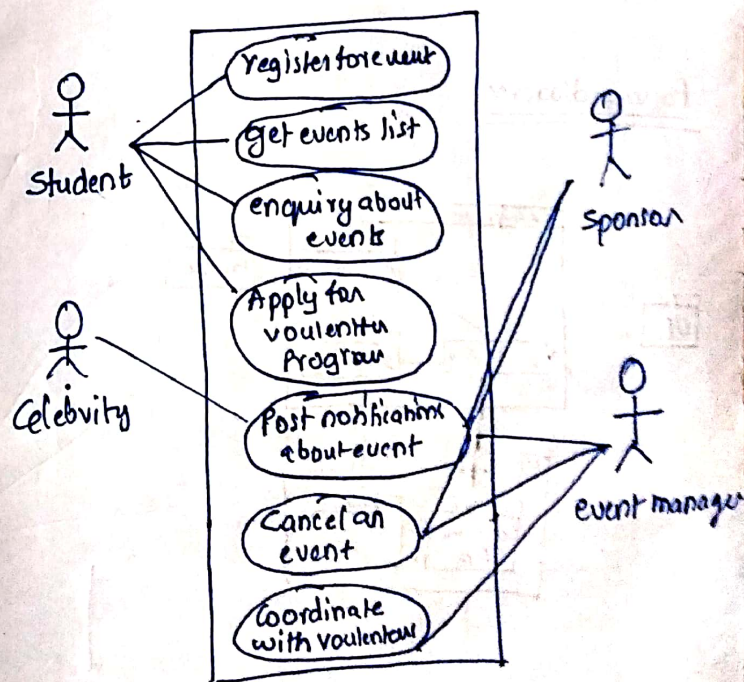 registerforevent
get events list
enquiry about
events
Apply for
voulenttu
Program
Post notifications
about event
Cancel an
event
Coordinate
with voulentour
Student
Celebrity
Sponsor
event manager